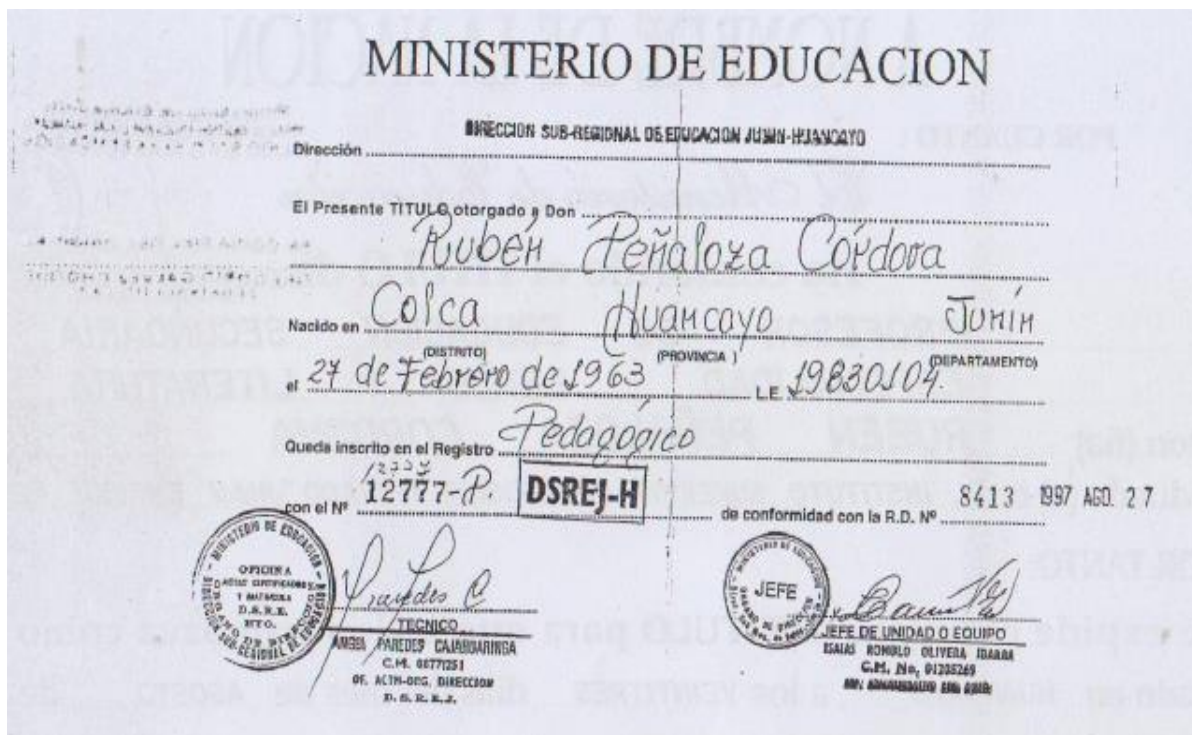 MINISTERIO DE EDUCACION
DIRECCION SUB-REGIONAL DE EDUCACION JUNIN-HUANCAYO
Dirección
El Presente TITULO otorgado a Don
Rubén Peñaloza Córdova
Nacido en Colca Huancayo Junín
(DISTRITO) (PROVINCIA) (DEPARTAMENTO)
el 27 de Febrero de 1963 L.E. 19830104
Queda inscrito en el Registro Pedagógico
con el Nº 12777-P DSREJ-H de conformidad con la R.D. Nº 8413 1997 AGO. 27
MINISTERIO DE EDUCACION
OFICINA
Y
D.S.R.E.
HYO.
Paredes C
TECNICO
PAREDES CAJABUARINGA
C.M.
OF. ACTM-DEG. DIRECCION
JEFE
JEFE DE UNIDAD O EQUIPO
ISAIAS ROMULO OLIVERA
C.M. No, 01205269